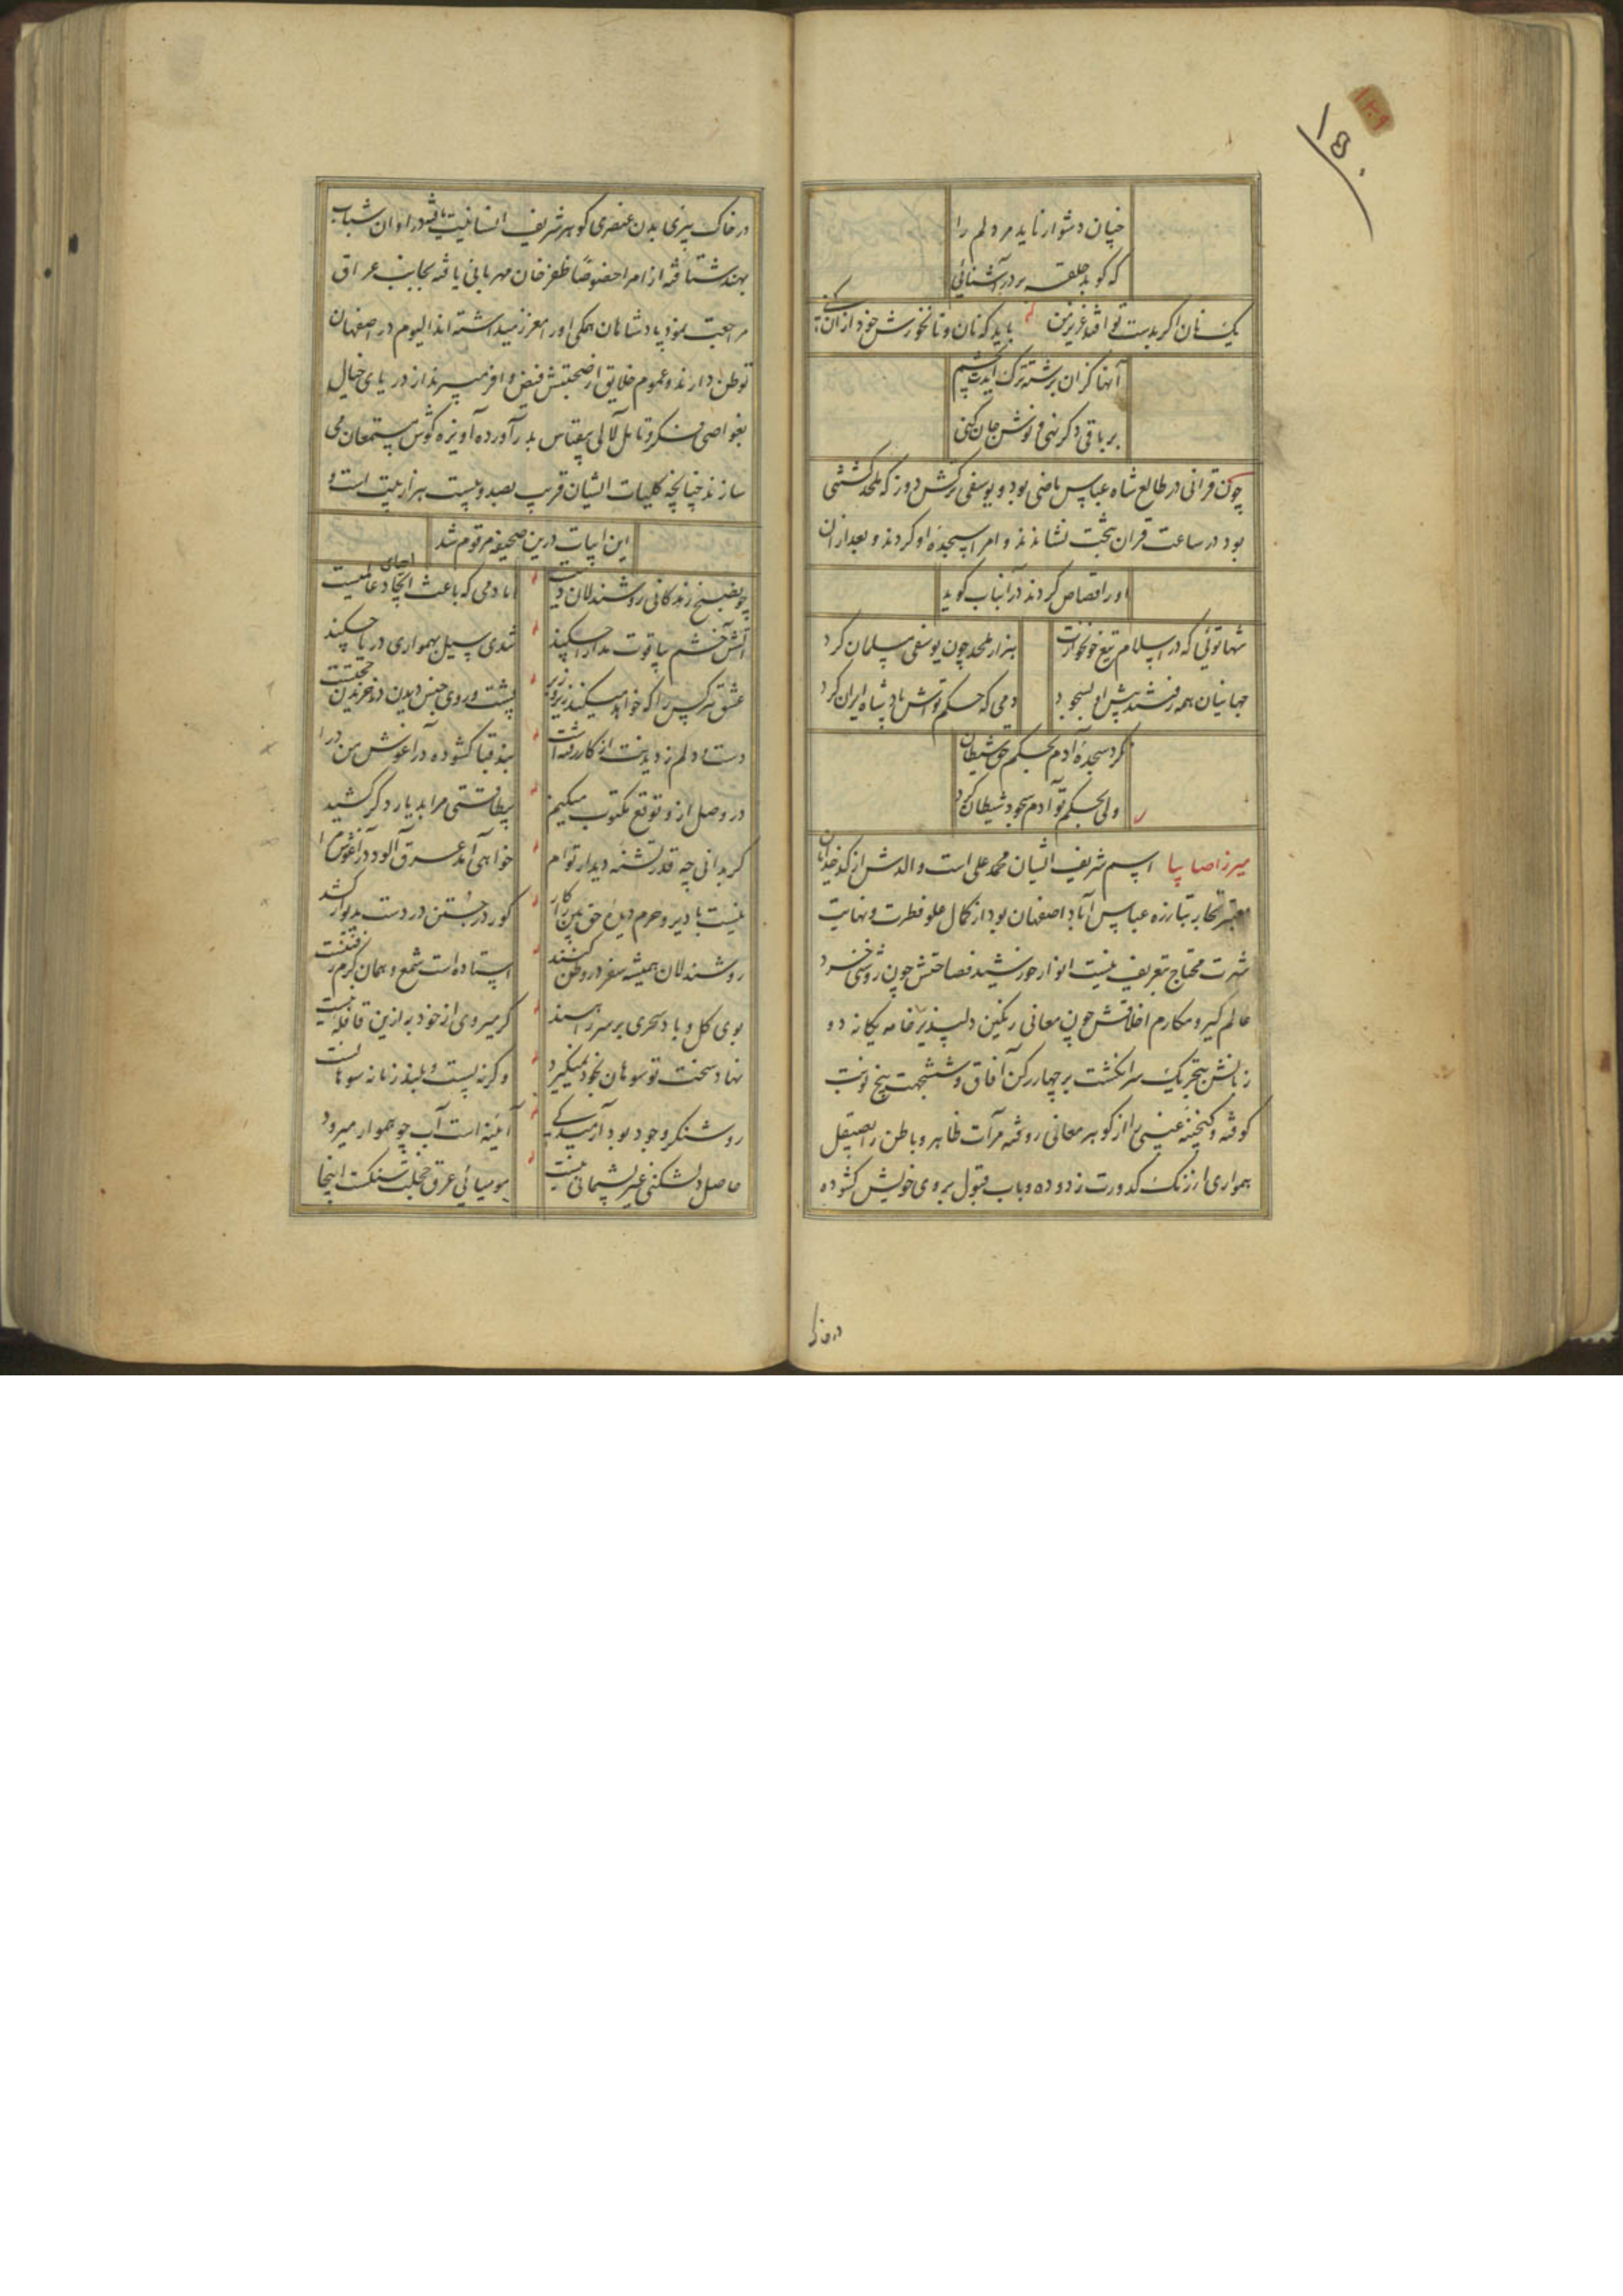 ۱۵۰
چنان دشوار ناید مرد لم را
که کوبد حلقه بر در آشنائی
یک نان اگر بدست تو افتد عزیز من
باید که نان و نانخورش خود از ان کنی
آنها کزان برشته ترک آیدت بچشم
بر باقی دگر نهی و نوش جان کنی
چون قرانی در طالع شاه عباس ماضی بود و یوسفی ترکش دوز که ملحد کشتنی
بود در ساعت قران بتخت نشاندند و امرا سجده او کردند و بعد ازان
اورا قصاص کردند در آنباب گوید
شها توئی که در اسلام تیغ خونخوارت
هزار ملحد چون یوسفی مسلمان کرد
جهانیان همه رفتند پیش او بسجود
دمی که حکم تواش پادشاه ایران کرد
نکرد سجده آدم بحکم حق شیطان
ولی بحکم تو آدم سجود شیطان کرد
میرزا صایبا اسم شریف ایشان محمد علی است والدش از کدخدایان
معتبر تجار تبارزه عباس آباد اصفهان بود از کمال علو فطرت و نهایت
شهرت محتاج تعریف نیست انوار خورشید فصاحتش چون روشنی خرد
عالم گیر و مکارم اخلاقش چون معانی رنگین دلپذیر خامه یگانه دو
زبانش بتحریک سر انگشت بر چهار رکن آفاق و ششجهت پنج نوبت
کوفته و گنجینه غیبی را از گوهر معانی روفته مرآت ظاهر و باطن را بصیقل
همواری از زنگ کدورت زدوده و باب قبول بروی خویش گشوده
در خاک
در خاک بیزی بدن عنصری گوهر شریف انسانیت یافته در اوان شباب
بهند شتافته از امرا خصوصا ظفر خان مهربانی یافته بجانب عراق
مراجعت نمود پادشاهان همگی اورا معزز میداشته اند الیوم در اصفهان
توطن دارند و عموم خلایق از صحبتش فیض وافر میبرند از دریای خیال
بغواصی فکر و تامل لآلی بیقیاس بدر آورده آویزه گوش مستمعان می
سازند چنانچه کلیات ایشان قریب بصد و بیست هزار بیت است و
این ابیات درین صحیفه مرقوم شد
چو صبح زندگانی روشندلان دمیست
اما دمی که باعث احیای عالمیست
آتش خشم بیاقوت مدارا چکند
تندی سیل بهمواری دریا چکند
عشق هر کس را که خواهد میکند زیر و زبر
پشت و روی جنس دیدن در خریدن حجتست
دست و دلم ز دیدنت از کار رفته است
بند قبا گشوده در آغوش من درا
در وصل از و توقع مکتوب میکنیم
بیطاقتی مرا بدیار دگر کشید
گر بدانی چه قدر تشنه دیدار توام
خواهی آمد عرق آلود در آغوش مرا
نیست با دیر و حرم دیده حق بین را کار
کور در جستن در دست بدیوار کشد
روشندلان همیشه سفر در وطن کنند
استاده است شمع و همان گرم رفتنست
بوی گل و باد سحری بر سر راهند
گر میروی از خود به ازین قافله نیست
نهاد سخت تو سوهان بخود نمیگیرد
وگرنه پست و بلند زمانه سوهانست
روشنگر وجود بود آرمیدگی
آئینه است آب چو هموار میرود
حاصل دلشکنی غیر پشیمانی نیست
مومیائی عرق خجلت سنگست اینجا